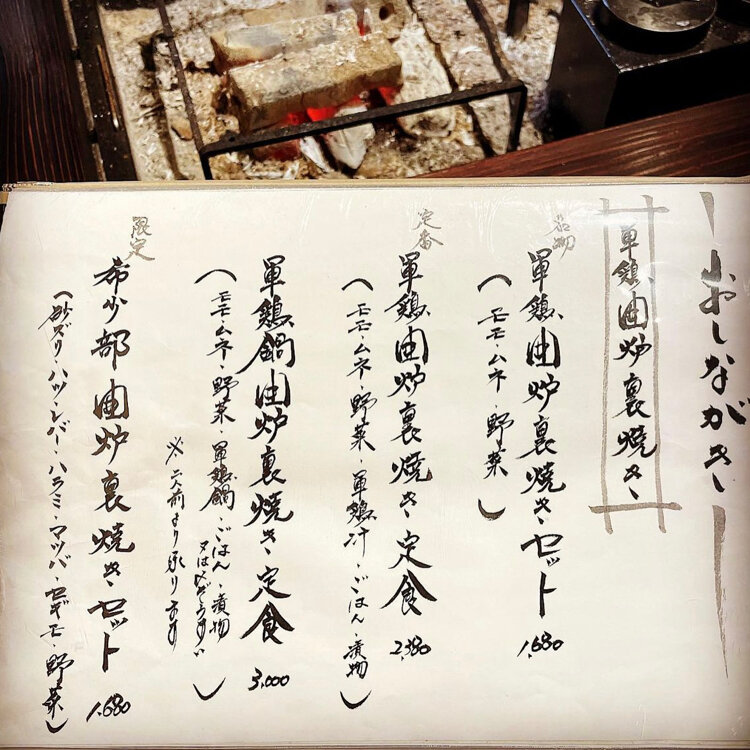 おしながき
軍鶏油炉裏焼き
名物
軍鶏油炉裏焼きセット
1,680
(モモ・ムネ・野菜)
定番
軍鶏油炉裏焼き定食
2,380
(モモ・ムネ・野菜・軍鶏汁・ごはん・漬物)
軍鶏鍋油炉裏焼き定食
3,000
(モモ・ムネ・野菜・軍鶏鍋・ごはん・漬物
又は〆ぞうすい)
※二人前より承ります
限定
希少部油炉裏焼きセット
1,680
(砂ズリ・ハツ・レバー・ハラミ・マツバ・セギモ・野菜)